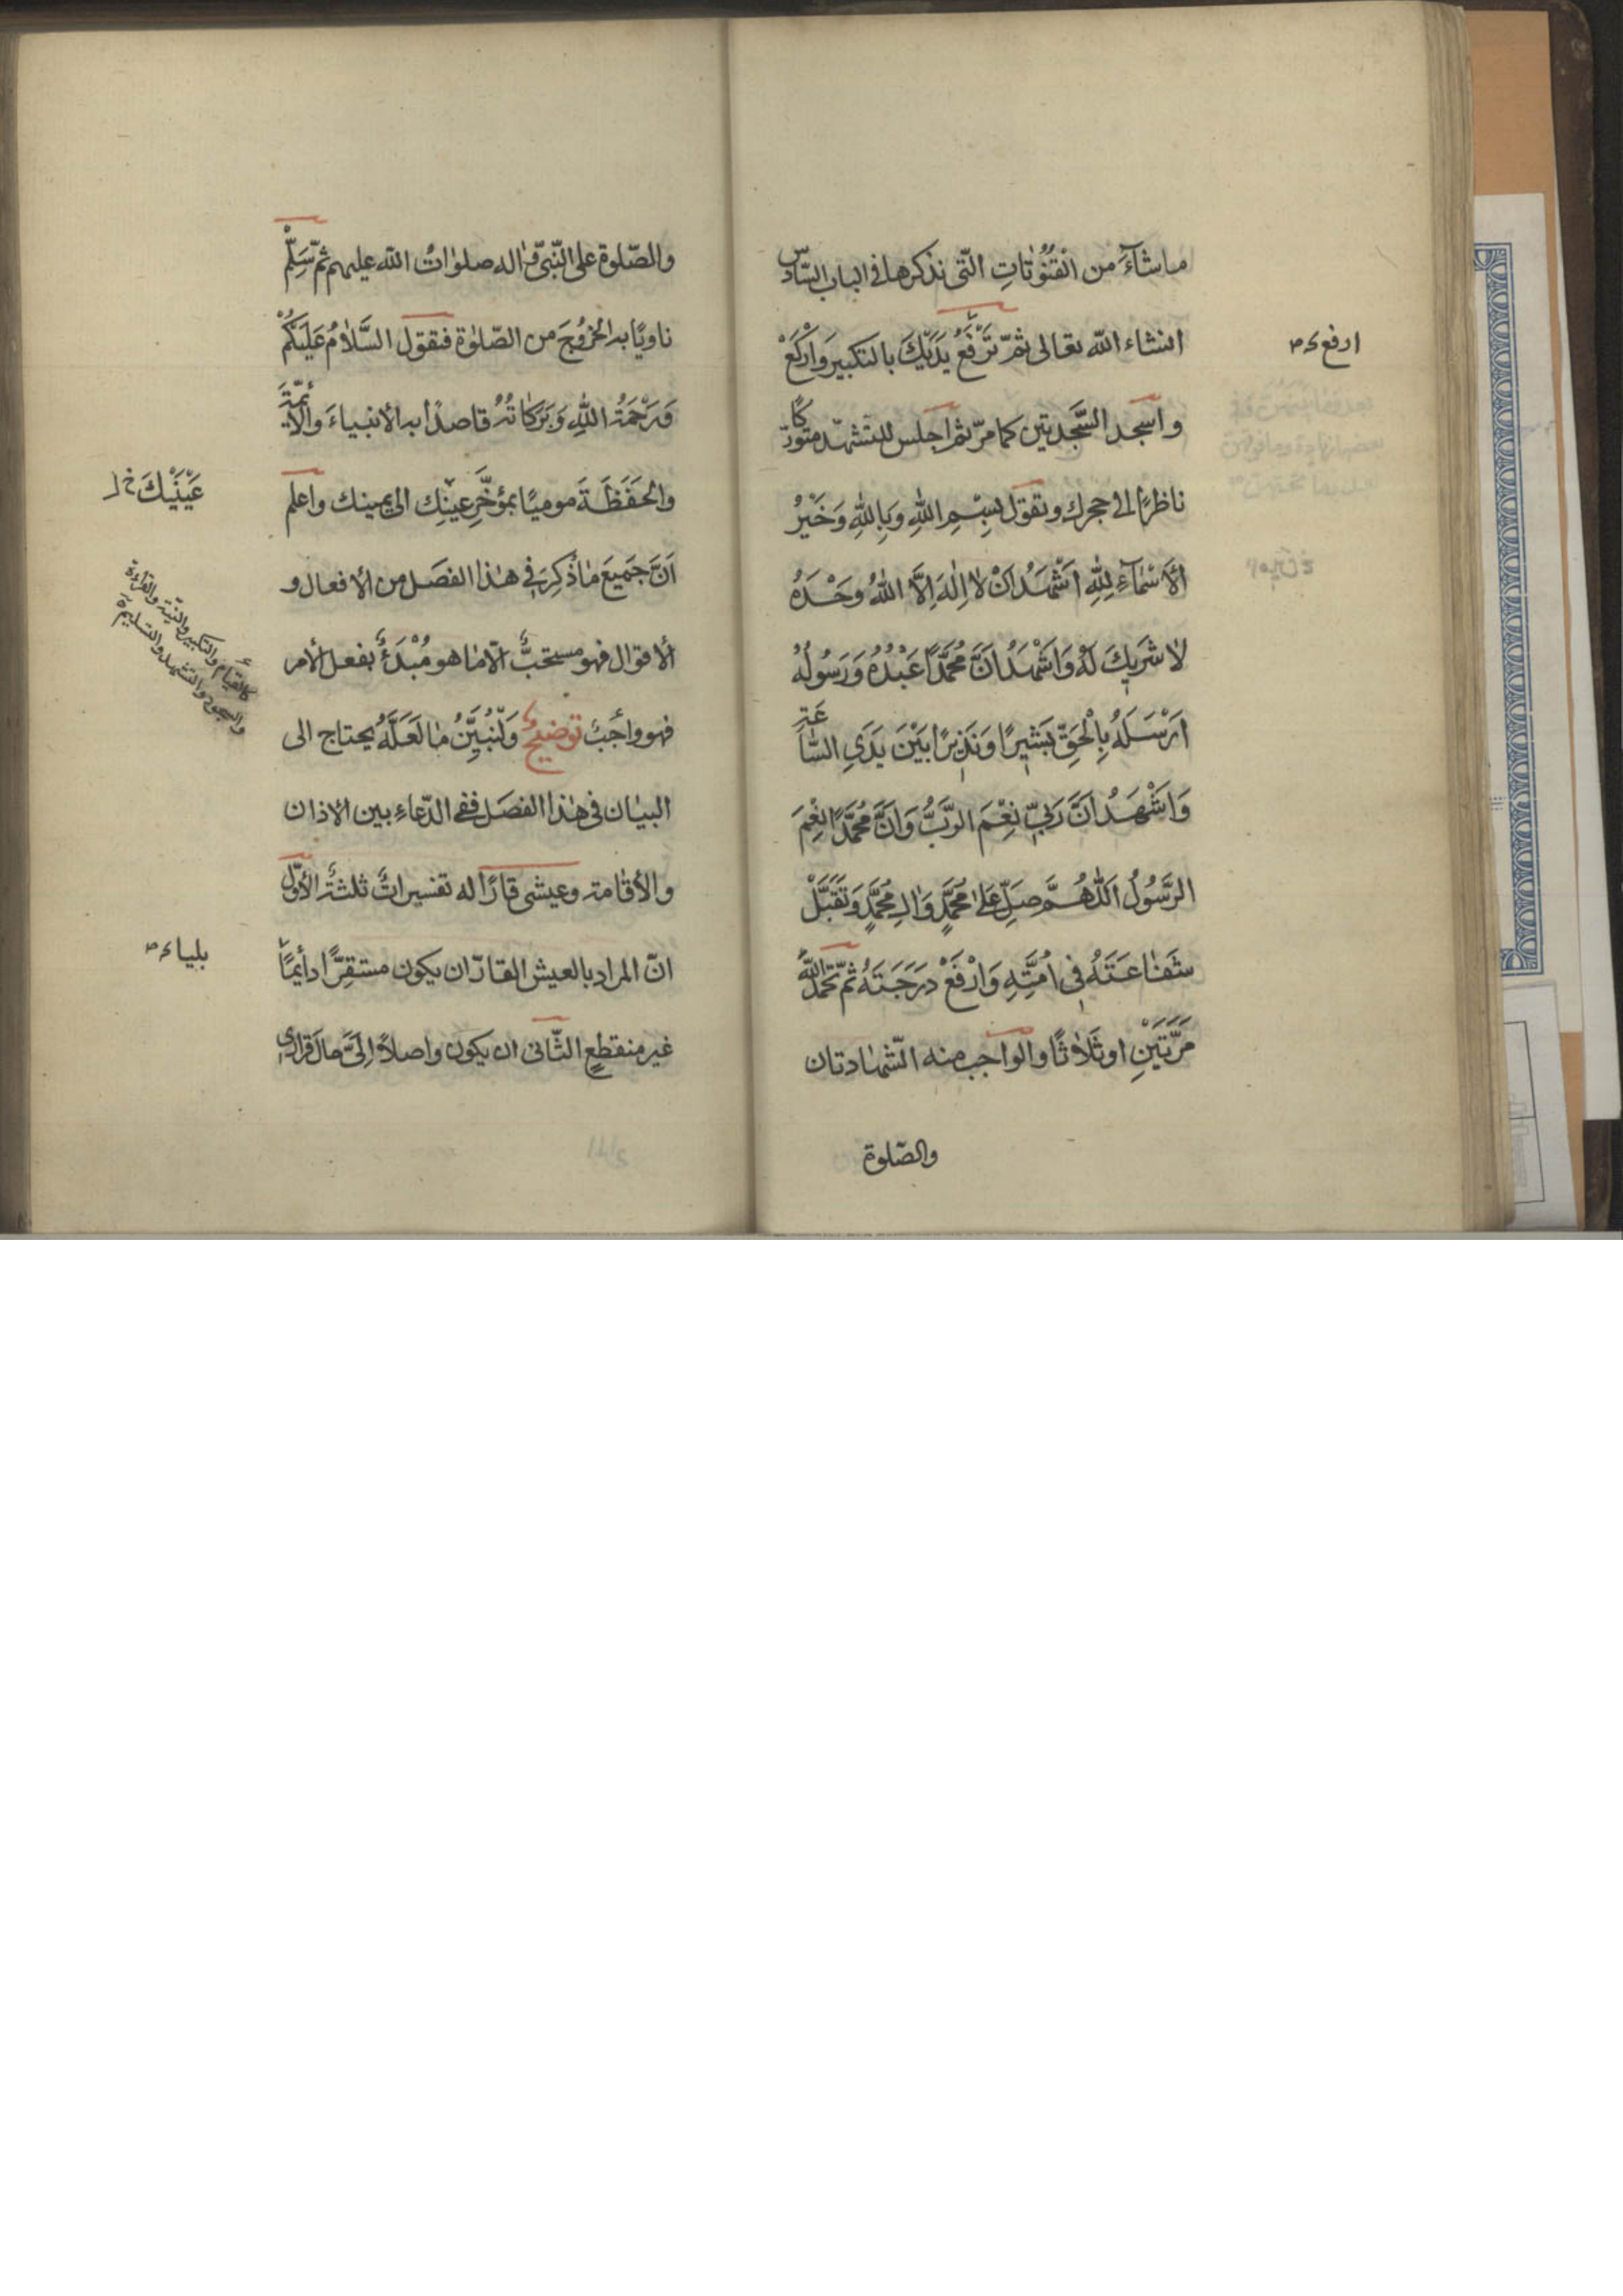 ما شآءَ من القنُوُتاتِ الّتى نذكرها فى الباب السّادسّ
انشاء الله تعالى ثمّ تَرْفَعُ يَدَيْكَ بالتكبيرَ وَارْكَعْ
ارفع
واسجد السَّجدتين كما مرّ ثم اجلس للتشهّد متورّكًا
ناظرًا الى حجرك وتقول بِسْمِ اللهِ وَبِاللهِ وَخَيْرُ
الْأَسْمٰآءِ لِلّٰهِ اَشْهَدُ اَنْ لاٰ اِلٰهَ اِلاَّ اللهُ وَحْدَهُ
لاٰ شَرٖيكَ لَهُ وَاَشْهَدُ اَنَّ مُحَمَّدًا عَبْدُهُ وَرَسُولُهُ
اَرْسَلَهُ بِالْحَقِّ بَشٖيرًا وَنَذٖيرًا بَيْنَ يَدَىِ السّٰاعَةِ
وَاَشْهَدُ اَنَّ رَبّٖى نِعْمَ الرَّبُّ وَاَنَّ مُحَمَّدًا نِعْمَ
الرَّسُولُ اَللّٰهُمَّ صَلِّ عَلىٰ مُحَمَّدٍ وَاٰلِ مُحَمَّدٍ وَتَقَبَّلْ
شَفٰاعَتَهُ فٖى اُمَّتِهِ وَارْفَعْ دَرَجَتَهُ ثمّ تحَمَّدُ اللهَ
مَرَّتَيْنِ او ثَلاٰثًا والواجب منه الشّهٰادتان
والصّلوة
والصّلوة على النّبىّ وٰاله صلوٰاتُ الله عليهم ثمّ سَلِّمْ
ناويًا به الخروُجَ من الصّلوٰة فتقول السَّلاٰمُ عَلَيْكُمْ
وَرَحْمَةُ اللهِ وَبَرَكٰاتُهُ قاصدًا به الأنبياءَ والأئمّةَ
والحَفَظَةَ موميًا بمؤخَّرِ عينِك الى يمينك واعلم
عَيْنَيْكَ خ ل
اَنَّ جَميَعَ مٰا ذُكِرَ فى هٰذا الفصَل من الأفعال و
الأقوال فهو مستحبٌّ الّا ما هو مُبْدَءٌ بفعل الأمر
كالقيام والتكبير والنيّة والقراءة
والسجود والتشهد والتسليم
فهو وٰاجبٌ توضيحٌ وَلْنُبَيِّنُ مٰا لَعَلَّهُ يحتاج الى
البيٰان فى هٰذا الفصَل ففى الدّعاءِ بين الأذان
والأقٰامة وعيشى قارًّا له تفسيراتٌ ثلثةٌ الأوّل
انّ المراد بالعيش القارّ ان يكون مستقِرًّا دائِمًا
بلياء
غير منقطعٍ الثّانى ان يكون واصلاً اِلىَّ حالَ قرارى